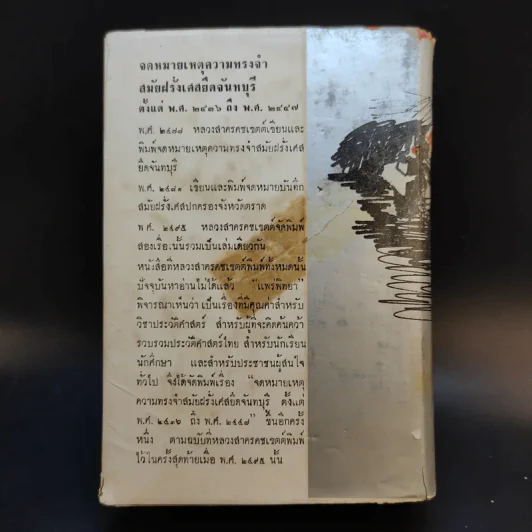 จดหมายเหตุความทรงจำ
สมัยฝรั่งเศสยึดจันทบุรี
ตั้งแต่ พ.ศ. ๒๔๓๖ ถึง พ.ศ. ๒๔๔๗
พ.ศ. ๒๔๘๘ หลวงสาครคชเขตต์เขียนและ
พิมพ์จดหมายเหตุความทรงจำสมัยฝรั่งเศส
ยึดจันทบุรี
พ.ศ. เขียนและพิมพ์จดหมายบันทึก
สมัยฝรั่งเศสปกครองจังหวัดตราด
พ.ศ. ๒๔๙๕ หลวงสาครคชเขตต์จัดพิมพ์
สองเรื่องนั้นรวมเป็นเล่มเดียวกัน
หนังสือที่หลวงสาครคชเขตต์พิมพ์ทั้งหมดนั้น
ปัจจุบันหาอ่านไม่ได้แล้ว "แพร่พิทยา"
พิจารณาเห็นว่า เป็นเรื่องที่มีคุณค่าสำหรับ
วิชาประวัติศาสตร์ สำหรับผู้ที่จะคิดค้นคว้า
รวบรวมประวัติศาสตร์ไทย สำหรับนักเรียน
นักศึกษา และสำหรับประชาชนผู้สนใจ
ทั่วไป จึงได้จัดพิมพ์เรื่อง "จดหมายเหตุ
ความทรงจำสมัยฝรั่งเศสยึดจันทบุรี ตั้งแต่
พ.ศ. ๒๔๓๖ ถึง พ.ศ. ๒๔๔๗" ขึ้นอีกครั้ง
หนึ่ง ตามฉบับที่หลวงสาครคชเขตต์พิมพ์
ไว้ในครั้งสุดท้ายเมื่อ พ.ศ. ๒๔๙๕ นั้น